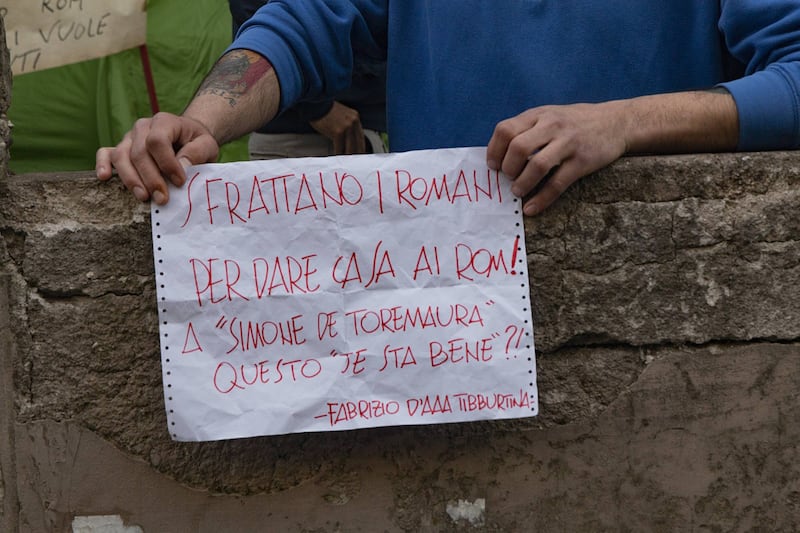 ROM
I VUOLE
TI
SFRATTANO I ROMANI
PER DARE CASA AI ROM!
A "SIMONE DE TOREMAURA"
QUESTO "JE STA BENE"?!
-FABRIZIO D'AAA TIBBURTINA-